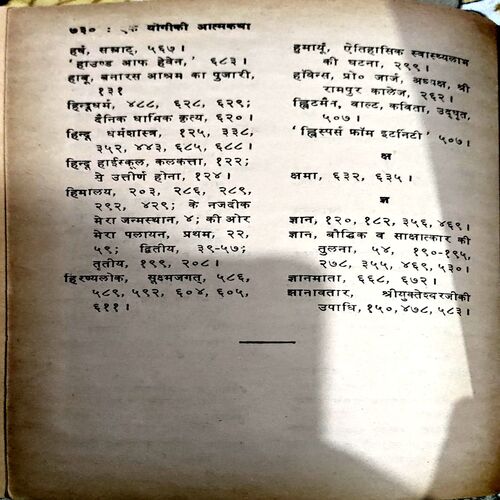 ७३० : एक योगीकी आत्मकथा
हर्ष, सम्राट्, ५६७ ।
'हाउण्ड आफ हेवेन,' ६८३ ।
हाबू, बनारस आश्रम का पुजारी,
१३१
हिन्दूधर्म, ४८८, ६२८, ६२९;
दैनिक धार्मिक कृत्य, ६२० ।
हिन्दू धर्मशास्त्र, १२५, ३३८,
३५२, ४४३, ६८५, ६८८ ।
हिन्दू हाईस्कूल, कलकत्ता, १२२;
से उत्तीर्ण होना, १२४ ।
हिमालय, २०३, २८६, २८९,
२९२, ४२९; के नजदीक
मेरा जन्मस्थान, ४; की ओर
मेरा पलायन, प्रथम, २२,
५९; द्वितीय, ३९-५७;
तृतीय, १९९, २०८ ।
हिरण्यलोक, सूक्ष्मजगत्, ५८६,
५८९, ५९२, ६०४, ६०५,
६११ ।
हुमायूँ, ऐतिहासिक स्वास्थ्यलाभ
की घटना, २९९ ।
हॉवेन्स, प्रो० जार्ज, अध्यक्ष, श्री
रामपुर कालेज, २६२ ।
ह्विटमैन, वाल्ट, कविता, उद्धृत,
५०७ ।
'ह्विस्पर्स फ्रॉम इटर्निटी' ५०७ ।
क्ष
क्षमा, ६३२, ६३५ ।
ज्ञ
ज्ञान, १२०, १८२, ३५६, ४६९ ।
ज्ञान, बौद्धिक व साक्षात्कार की
तुलना, ५४, १९०-१९५,
२७८, ३५५, ४६९, ५३० ।
ज्ञानमाता, ६६८, ६७२ ।
ज्ञानावतार, श्रीयुक्तेश्वरजीकी
उपाधि, १५०, ४७८, ५८३ ।